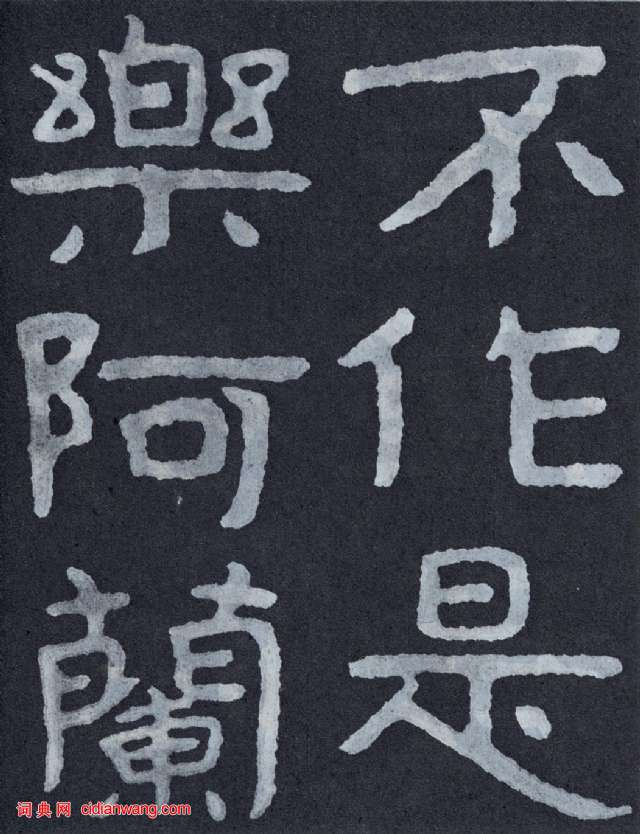 不作是
樂阿蘭
词典网 cidianwang.com